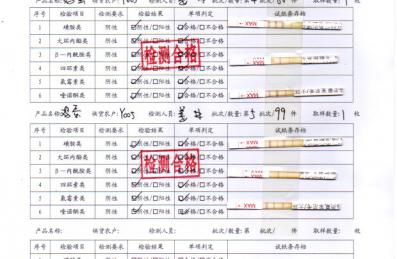 序号 检验项目 检测要求 检验结果 单项判定 试纸条存档
1 磺胺类 阴性 ☑阴性/□阳性 ☑合格/□不合格
2 大环内酯类 阴性 ☑阴性/□阳性 ☑合格/□不合格
3 β-内酰胺类 阴性 ☑阴性/□阳性 ☑合格/□不合格
4 四环素类 阴性 ☑阴性/□阳性 ☑合格/□不合格
5 氟霉素类 阴性 ☑阴性/□阳性 ☑合格/□不合格
6 喹诺酮类 阴性 ☑阴性/□阳性 ☑合格/□不合格
检测合格
产品名称: 鸡蛋 供货农户: Y005 检测人员: 批次/数量: 第 5 批次/ 99 件 取样数量: 1 枚
序号 检验项目 检测要求 检验结果 单项判定 试纸条存档
1 磺胺类 阴性 ☑阴性/□阳性 ☑合格/□不合格
2 大环内酯类 阴性 ☑阴性/□阳性 ☑合格/□不合格
3 β-内酰胺类 阴性 ☑阴性/□阳性 ☑合格/□不合格
4 四环素类 阴性 ☑阴性/□阳性 ☑合格/□不合格
5 氟霉素类 阴性 ☑阴性/□阳性 ☑合格/□不合格
6 喹诺酮类 阴性 ☑阴性/□阳性 ☑合格/□不合格
检测合格
产品名称: 供货农户: 检测人员: 批次/数量: 第 批次/ 件 取样数量: 枚
序号 检验项目 检测要求 检验结果 单项判定 试纸条存档